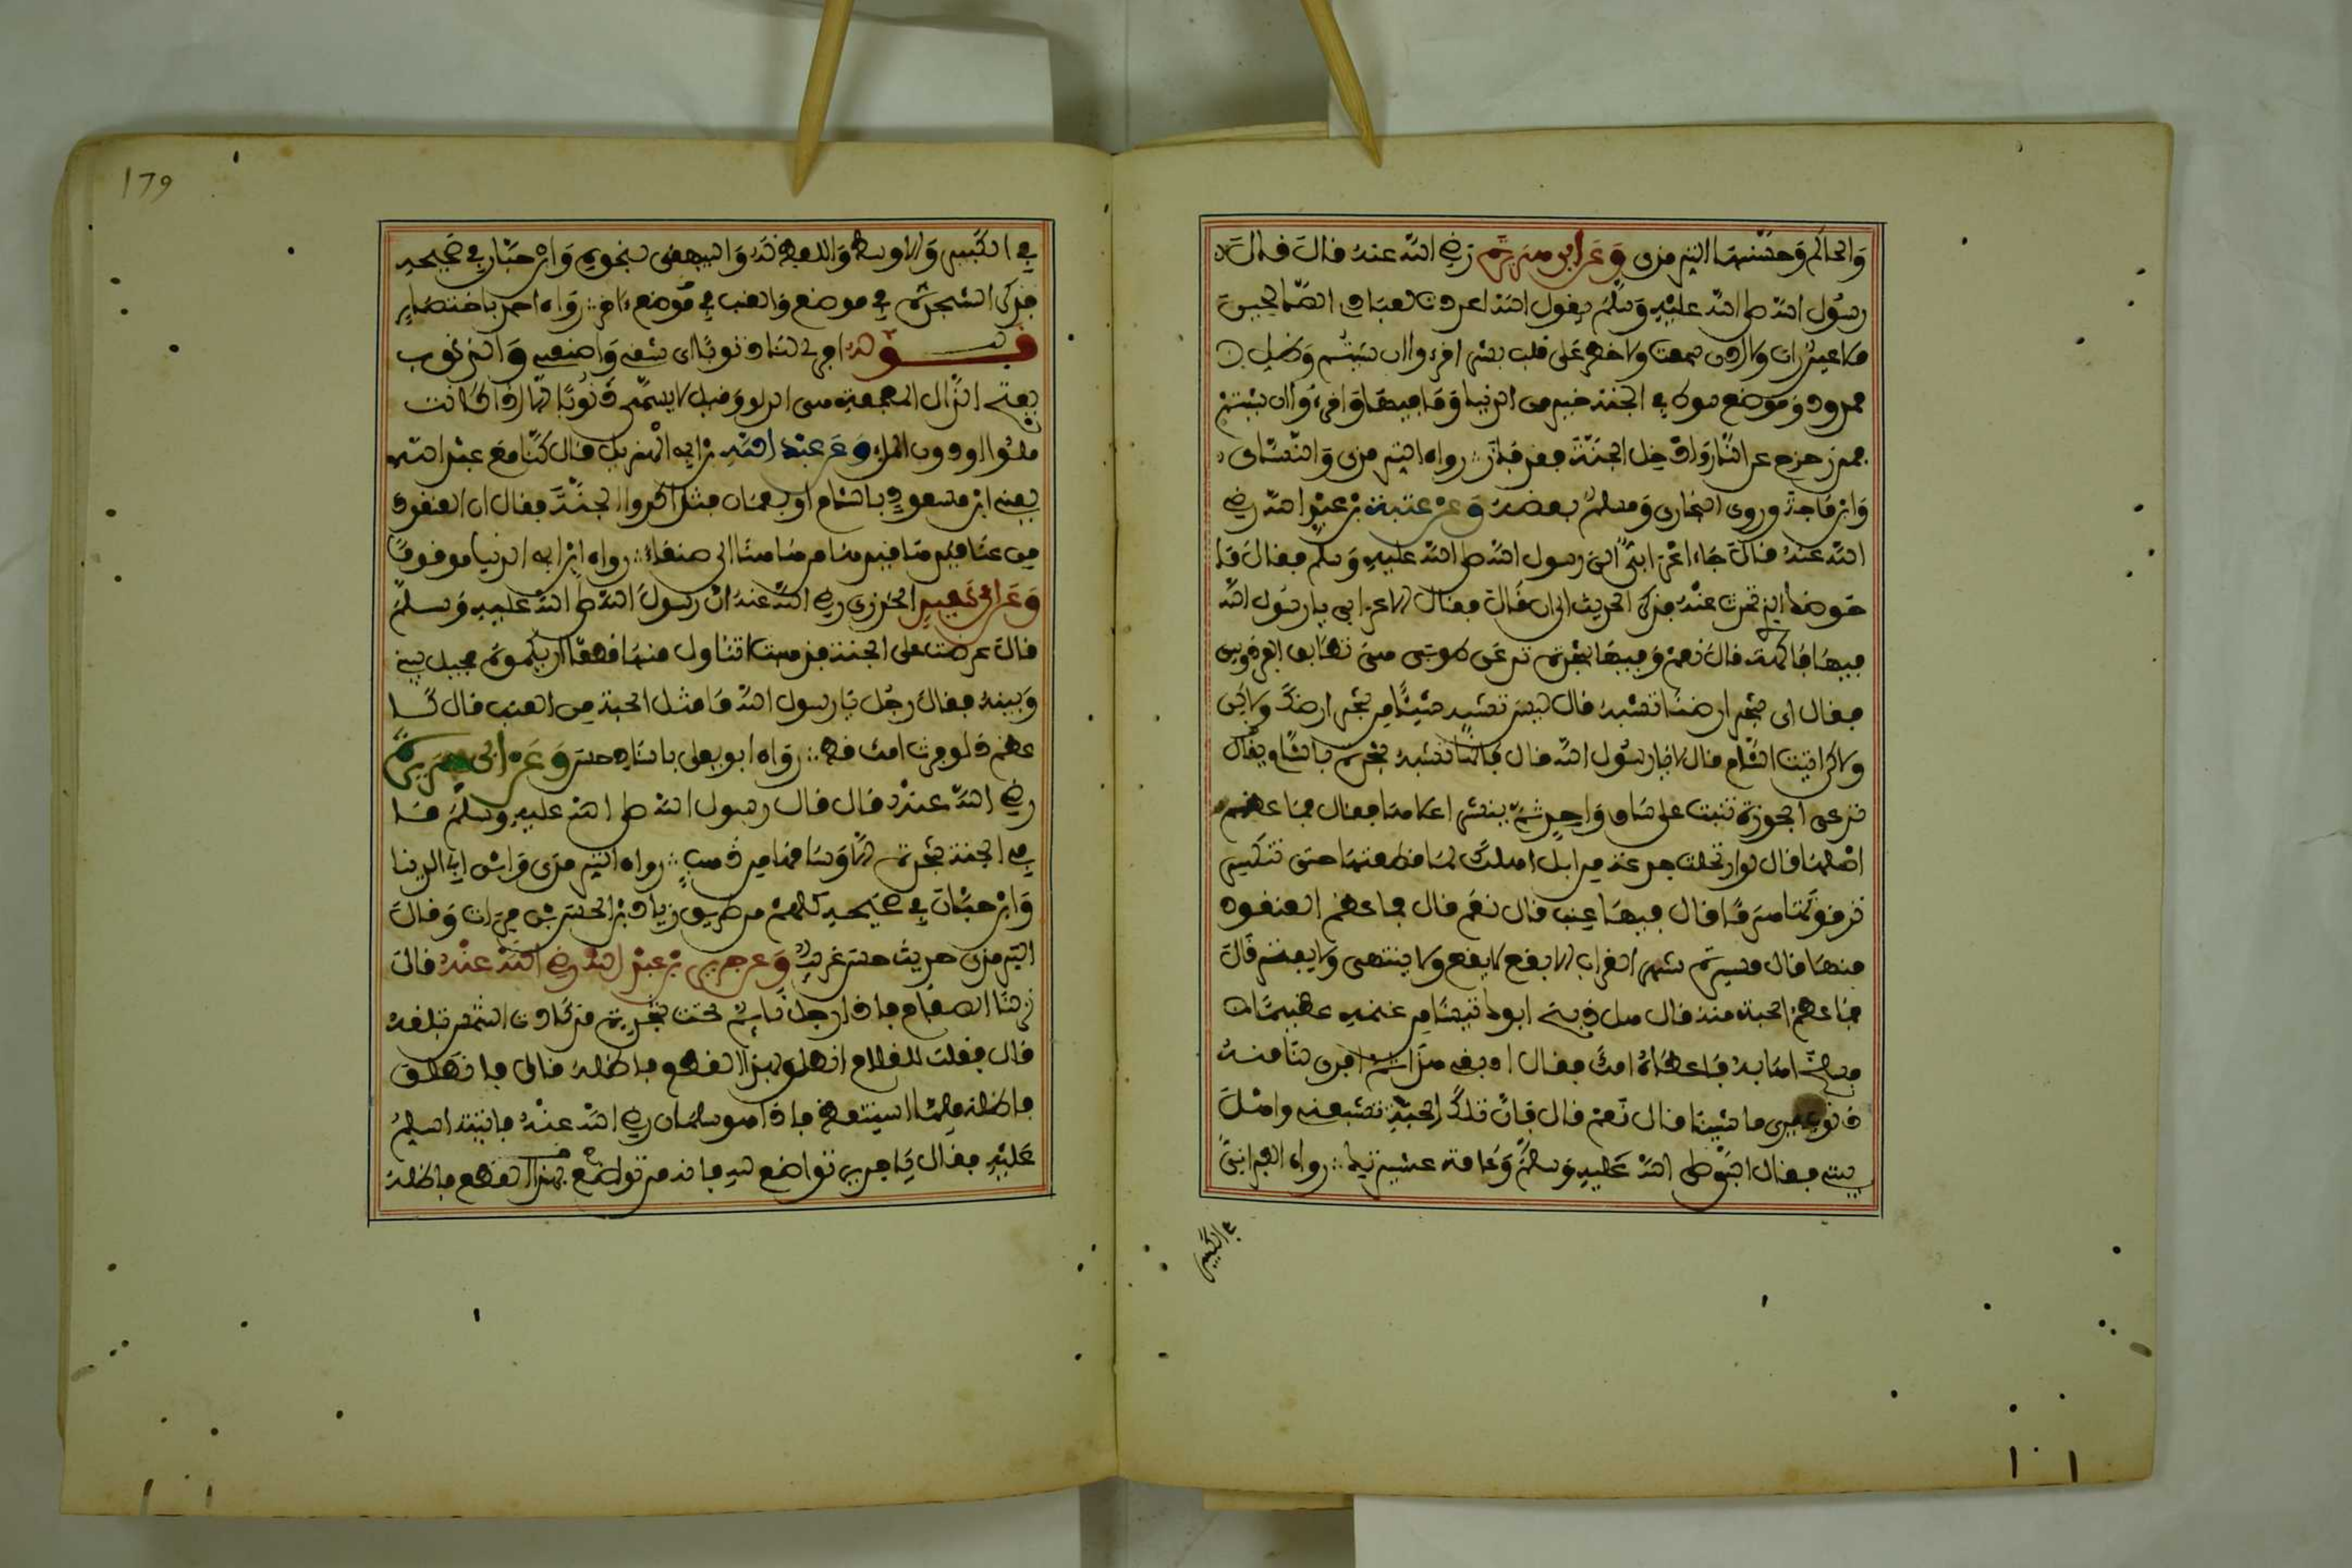 والحاكم وحسنها الترمذي وعن ابي هريرة رضي الله عنه قال قال
رسول الله صلى الله عليه وسلم يقول الله اعددت لعبادي الصالحين
ما لا عين رات ولا اذن سمعت ولا خطر على قلب بشر اقرءوا ان شئتم وظل
ممدود وموضع سوط في الجنة خير من الدنيا وما فيها واقرءوا ان شئتم
فمن زحزح عن النار وادخل الجنة فقد فاز رواه الترمذي والنساءي
وابن ماجة وروى البخاري ومسلم بعضه وعن عتبة بن عبد الله رضي
الله عنه قال جاء اعرابي الى رسول الله صلى الله عليه وسلم فقال ما
حوضك الذي تحدث عنه فذكر الحديث الى ان قال فقال الاعرابي يا رسول الله
فيها فاكهة قال نعم وفيها شجرة تدعى طوبى هي تطابق الفردوس
فقال اي شجر ارضنا تشبه قال ليس تشبه شيئا من شجر ارضك ولكن
ولاكن اتيت الشام قال لا يا رسول الله قال فانها تشبه شجرة بالشام يقال
تدعى الجوزة تنبت على ساق واحد ثم ينتشر اعلاها فقال فما عظم
اصلها قال لو ارتحلت جذعة من ابل اهلك لما قطعتها حتى تنكسر
ترقوتها هرما قال فيها عنب قال نعم قال فما عظم العنقود
منها قال مسيرة شهر الغراب الابقع لا يقع ولا ينثني ولا يفتر قال
فما عظم الحبة منه قال هل ذبح ابوك تيسا من غنمه عظيما
فسلخ اهابه فاعطاه امك فقال ادبغي هذا ثم افري لنا منه
ذنوبا يروي ماشيتنا قال نعم قال فان تلك الحبة تشبعني واهل
بيتي فقال النبي صلى الله عليه وسلم وعامة عشيرتك رواه الطبراني
في الكبير
179
في الكبير والاوسط واللفظ له والبيهقي بنحوه وابن حبان في صحيحه
فذكر الشجرة في موضع والعنب في موضع ءاخر رواه احمد باختصار
قوله افري لنا ذنوبا اي شقي واصنعي والذنوب
بفتح الذال المعجمة هي الدلو وقيل لا يسمى ذنوبا الا اذا كانت
ملئوا او دون الملء وعن عبد الله بن ابي الهذيل قال كنا مع عبد الله
يعني ابن مسعود بالشام او بعمان فتذاكروا الجنة فقال ان العنقود
من عناقيدها من هاهنا الى صنعاء رواه ابن ابي الدنيا موقوفا
وعن ابي سعيد الخدري رضي الله عنه ان رسول الله صلى الله عليه وسلم
قال عرضت علي الجنة فذهبت اتناول منها قطفا اريكموه فحيل بيني
وبينه فقال رجل يا رسول الله ما مثل الحبة من العنب قال كا
عظم دلو فرت امك قط رواه ابو يعلى باسناد حسن وعن ابي هريرة
رضي الله عنه قال قال رسول الله صلى الله عليه وسلم ما
في الجنة شجرة الا وساقها من ذهب رواه الترمذي وابن ابي الدنيا
وابن حبان في صحيحه كلهم من طريق زياد بن الحسن بن فرات وقال
الترمذي حديث حسن غريب وعن جرير بن عبد الله رضي الله عنه قال
نزلنا الصفاح فاذا رجل نايم تحت شجرة قد كادت الشمس تبلغه
قال فقلت للغلام انطلق بهذا النطع فاظله قال فانطلق
فاظله فلما استيقظ فاذا هو سلمان رضي الله عنه فاتيته اسلم
عليه فقال يا جرير تواضع لله فانه من تواضع